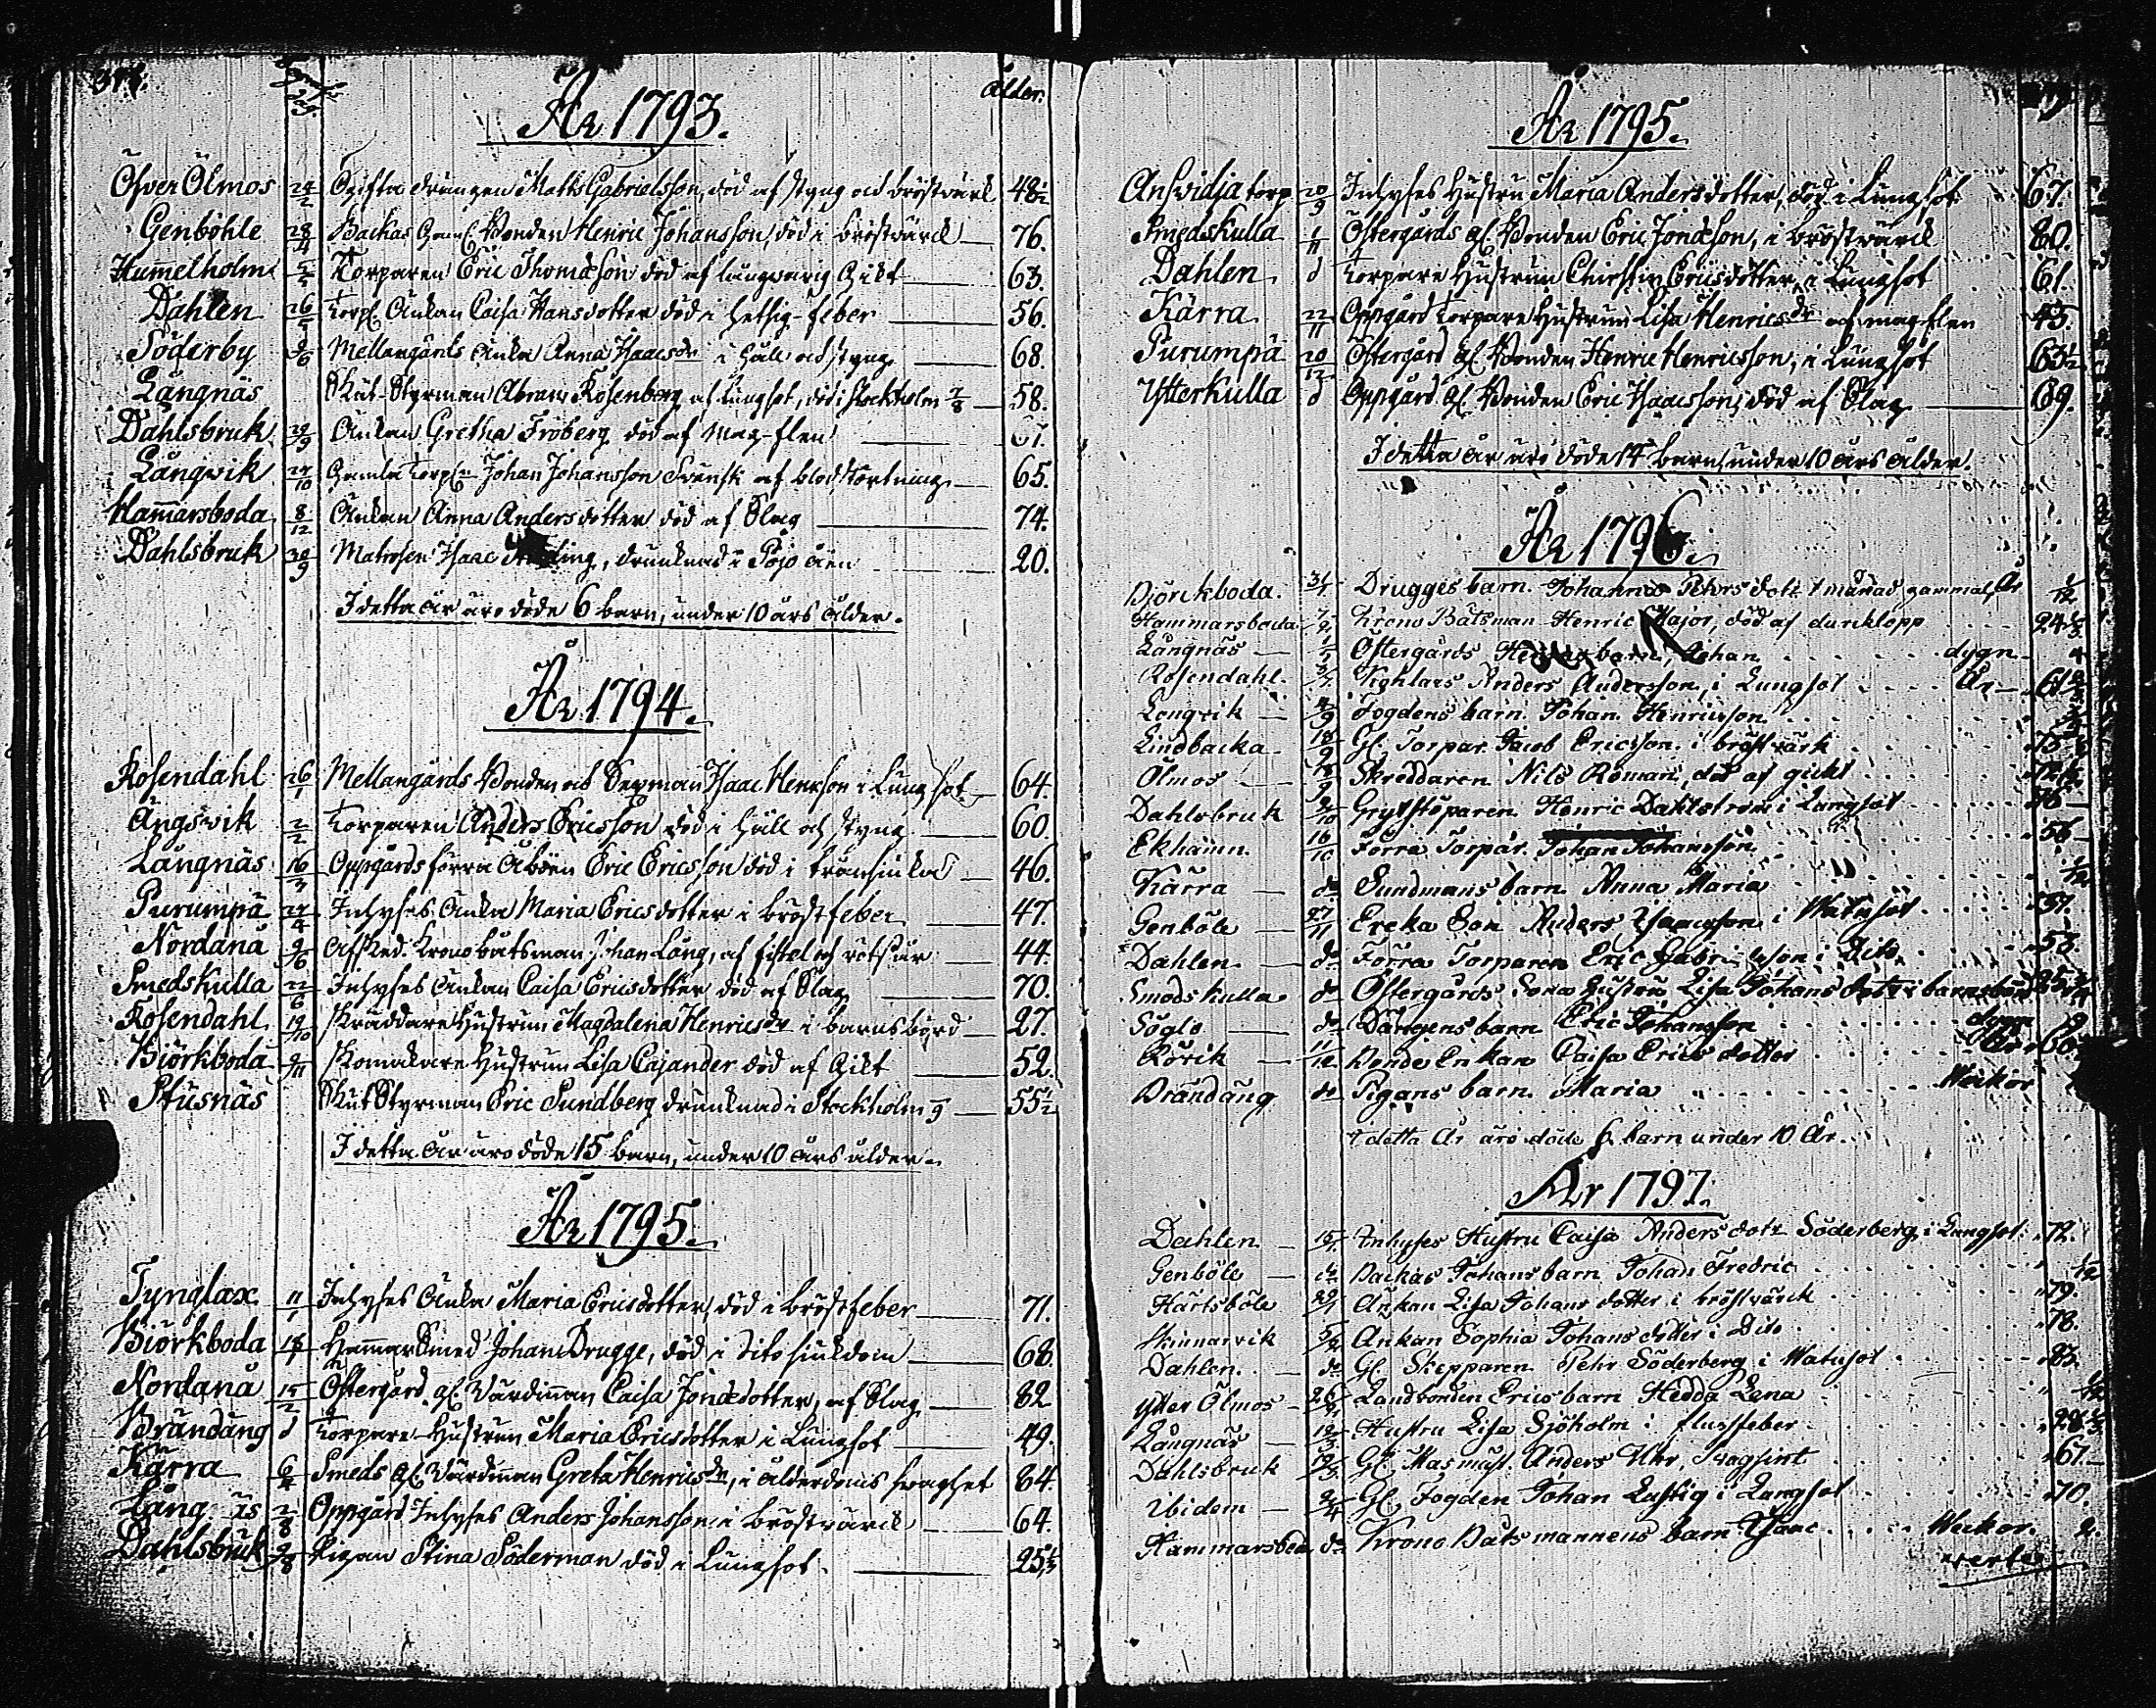 Ålder.
År 1793.
Öfver Ölmos 24/2 Ogifta drängen Matts Gabrielsson, död af styng och bröstvärk 48 1/2
Genböhle 28/4 Backas Gaml. Bonden Henric Johansson, död i bröstvärck 76.
Hum̄elholm Torparen Eric Thomæson död af långvarig Gikt 63.
Dahlen 26/5 Torp. Änkan Caisa Hansdotter död i hetsig-feber 56.
Söderby Mellangårds Änka Anna Isaacsdr i håll och styng 68.
Långnäs Skut-Styrman Abram Rosenberg af lungsot, död i Stockholm 7/8 58.
Dahlsbruk 29/9 Änkan Gretha Fröberg död af mag-flen 67.
Långwik 24/10 Gamla Torp. Johan Johansson Svensk af blodstörtning 65.
Ham̄arsboda 8/12 Änkan Anna Andersdotter död af Slag 74.
Dahlsbruk 30/9 Matrosen Isaac drunknad i Pojo åen 20.
I detta år äro döde 6 barn, under 10 års ålder.
År 1794.
Rosendahl 26/1 Mellangårds Bonden och Sexman Isaac Henrsson i Lungsot 64
Ängsvik 2/2 Torparen Anders Ericsson död i håll och styng 60.
Långnäs 16/3 Oppgårds förra Åboen Eric Ericsson död i tränsiuka 46.
Purumpä 24/4 Inhyses Änka Maria Ericsdotter i bröstfeber 47.
Nordanå 9/6 Afsked. Kronobåtsman Johan Lång, af fistel och rötsår 44.
Smedskulla 22/6 Inhyses Änkan Caisa Ericsdotter död af Slag 70.
Rosendahl 19/10 Skräddare Hustrun Magdalena Henricsdr i barnsbörd 27.
Biörkboda 9/11 Skomakare Hustrun Lisa Cajander död af Gikt 52.
Stusnäs Skut Styrman Eric Sundberg drunknad i Stockholm 55 1/2
I detta år äro döde 15 barn, under 10 års ålder.
År 1795.
Tynglax 11/1 Inhyses Änka Maria Ericsdotter, död i bröstfeber 71.
Biörkboda Ham̄arsmed Johan Drugge, död i siukdom 68.
Nordanå 15/2 Östergård gl. Värdin̄an Caisa Jonædotter, af Slag 82
Brändäng d Torpare-Hustrun Maria Ericsdotter i Lungsot 49.
Kärra 6/4 Smeds gl. Värdin̄an Greta Henricsdr, i ålderdoms svaghet 84.
Lång äs 2/8 Oppgård Inhyses Anders Johansson i Bröstvärck 64.
Dahlsbruk 9/8 Pigan Stina Söderman död i Lungsot 25 1/3
År 1795.
Ansvidja torp 20/9 Inhyses Hustru Maria Andersdotter, död i Lungsot 67.
Smedskulla 1/11 Östergårds gl. Bonden Eric Jonæson, i bröstvärck 80.
Dahlen d Torpare Hustrun Christin Ericsdotter i Lungsot 61.
Kärra 22/11 Oppgård Torpare Hustrun Lisa Henricsdr af mag-flen 45.
Purumpä 20/12 Östergård gl. Bonden Henric Henricsson, i Lungsot 63 1/2
Ytterkulla d Oppgård gl. Bonden Eric Isaacsson, död af Slag 69.
I detta år äro döde 14 barn, under 10 års ålder.
År 1796.
Björckboda. Drugges barn Johanna Pehrs dott. 1 månad gammal, År 1/12
Hammarsboda Krono Båtsman Henric Major, död af durcklopp 24
Långnäs Östergårds barn, Johan dygn
Rosendahl Anders Andersson, i Lungsot År 61
Longvik Fogdens barn Johan Henricsson
Lindbacka 18/9 Gl. Torpar. Jacob Ericsson i bröstvärk 75
Ölmos Skreddaren Nils Roman, död af gickt 72
Dahlsbruk Grytstöparen Henric Dahlström i Lungsot 46
Ekhamn. 16/10 Förra Torpar. Johan Johansson 56
Kärra do Sundmans barn Anna Maria 1/12
Genböle 27/11 Ereka Son Anders Isaacsson i Watusot 37.
Dahlen do Förra Torparen Eric Gabrielsson i Dito 53.
Smedskulla do Östergårds Sona Hustru Lisa Johans dotr i barnsbörd 25
Söglö do Dängens barn Eric Johansson dygn
Rövik Bonde Enkan Caisa Erics dotter
Brändäng do Pigans barn Maria Weckor
I detta År äro döde 6 barn under 10 År.
År 1797.
Dahlen Inhyses Hustru Caisa Anders dotr Söderberg i Lungsot: 72.
Genböle Backas Johans barn Johan Fredric 1/12
Härtsböle Änkan Lisa Johans dotter i bröstvärck 79.
Skinnarvik Ankan Sophia Johans dotter i Dito 78.
Dahlen. do Gl. Skepparen Pehr Söderberg i Watusot 83.
Ytter Ölmos Landbonden Erics barn Hedda Lena
Långnäs Hustru Lisa Sjöholm i flussfeber 28
Dahlsbruk Gl. Masmäst. Anders Uhr, Svagsint 67.
ibidem Gl. Fogden Johan Lustig i Lungsot 70.
Hammarsboda do Krono Båtsmannens barn Isaac Weckor. 2.
verte